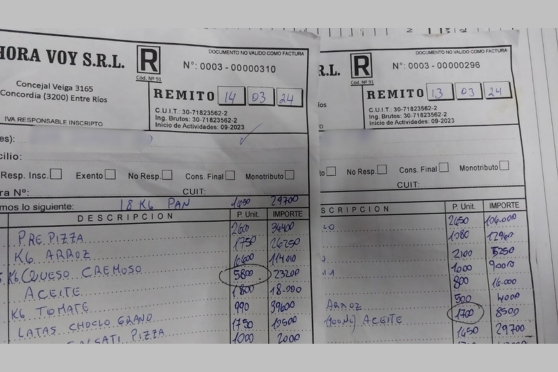 HORA VOY S.R.L.
R
Cód. Nº 91
DOCUMENTO NO VALIDO COMO FACTURA
Nº: 0003 - 00000310
Concejal Veiga 3165
Concordia (3200) Entre Ríos
REMITO 14 03 24
IVA RESPONSABLE INSCRIPTO
C.U.I.T: 30-71823562-2
Ing. Brutos: 30-71823562-2
Inicio de Actividades: 09-2023
es):
cilio:
Resp. Insc. Exento No Resp. Cons. Final Monotributo
ra Nº: CUIT:
mos lo siguiente: 18 KG PAN 1650 29700
DESCRIPCION P. Unit. IMPORTE
PREPIZZA 34400
KG ARROZ 1750 26250
11400
KG QUESO CREMOSO 5800 23200
ACEITE 1800 18.000
KG TOMATE 990 39600
LATAS CHOCLO GRANO 1750 10500
PIZZA 1000 2000
R.L.
R
Cód. Nº 91
DOCUMENTO NO VALIDO COMO FACTURA
Nº: 0003 - 00000296
REMITO 13 03 24
C.U.I.T: 30-71823562-2
Ing. Brutos: 30-71823562-2
Inicio de Actividades: 09-2023
No Resp. Cons. Final Monotributo
CUIT:
SCRIPCION P. Unit. IMPORTE
2650 106.000
1080 12960
2100 5250
1000
800 16.000
500 4000
ARROZ 1700 8500
ACEITE 1650 29.700